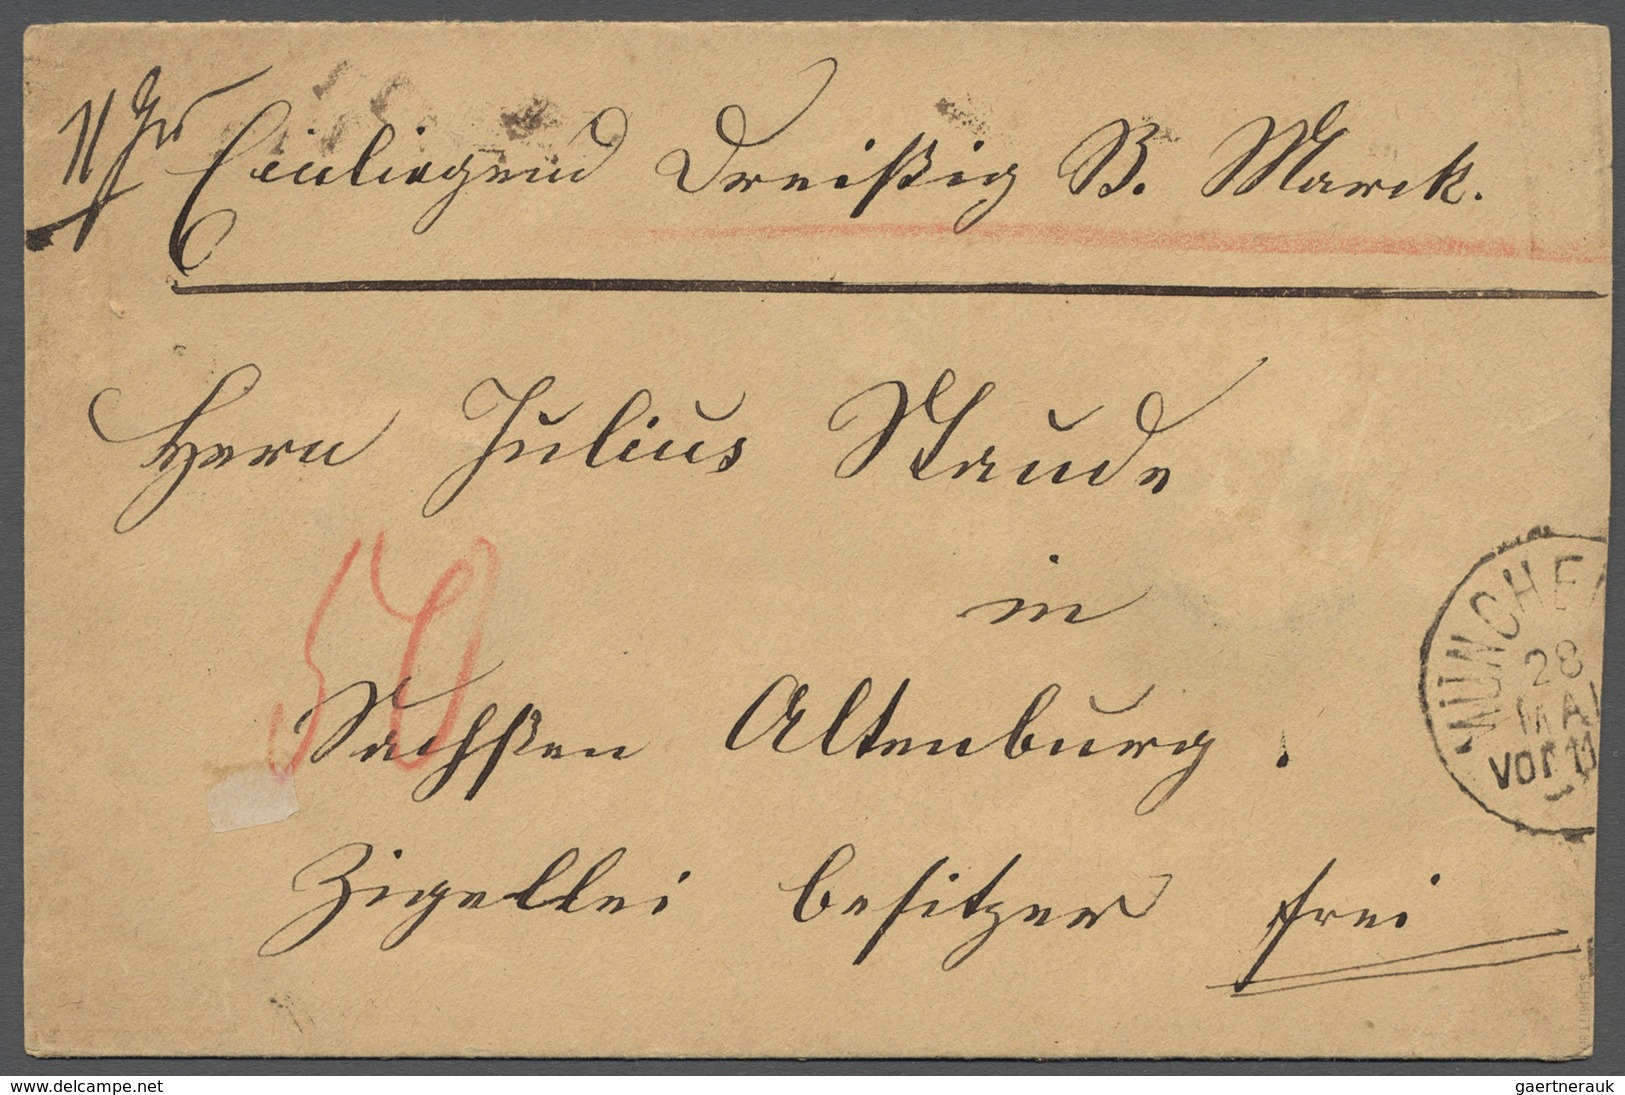 Einliegend Dreißig B. Marck.
Herrn Julius Staude
in
50
Sachßen Altenburg.
Zigellei besitzer frei
MÜNCHEN
28
MAI
Vor 11
www.delcampe.net
gaertnerauk